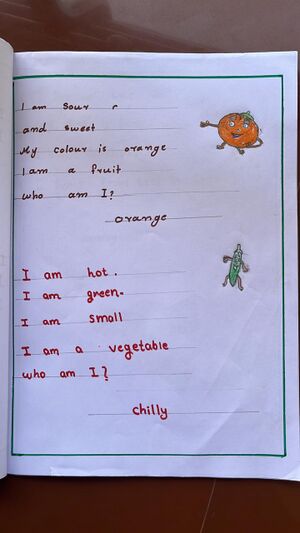 I am sour r
and sweet
My colour is orange
I am a fruit
who am I?
orange
I am hot.
I am green.
I am small
I am a vegetable
who am I?
chilly